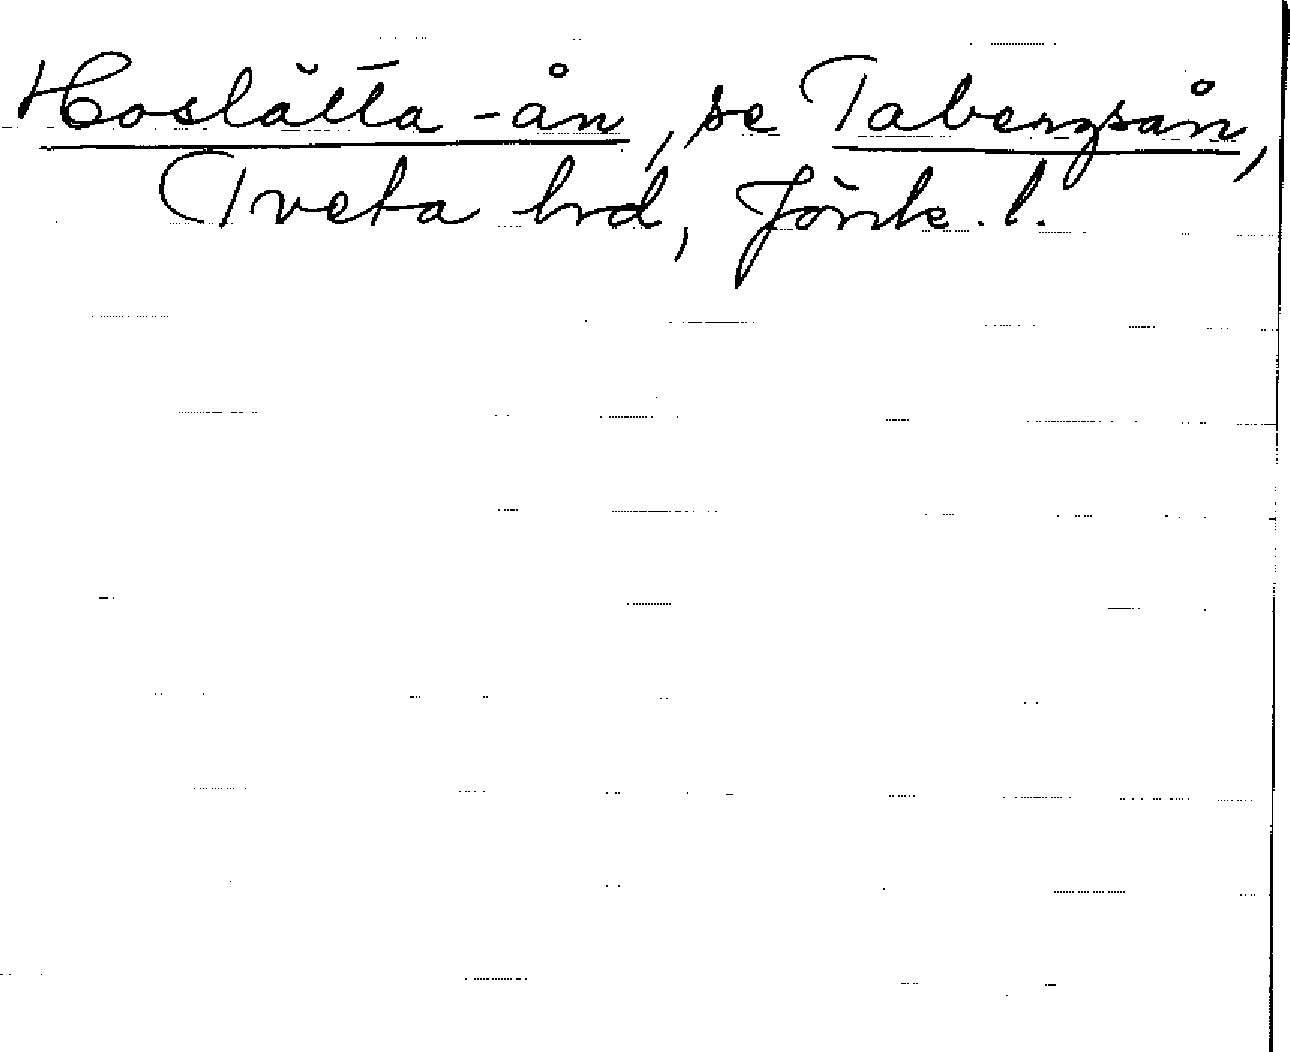 Hoslätta-ån, se Tabergsån,
Tveta hrd, Jönk. l.